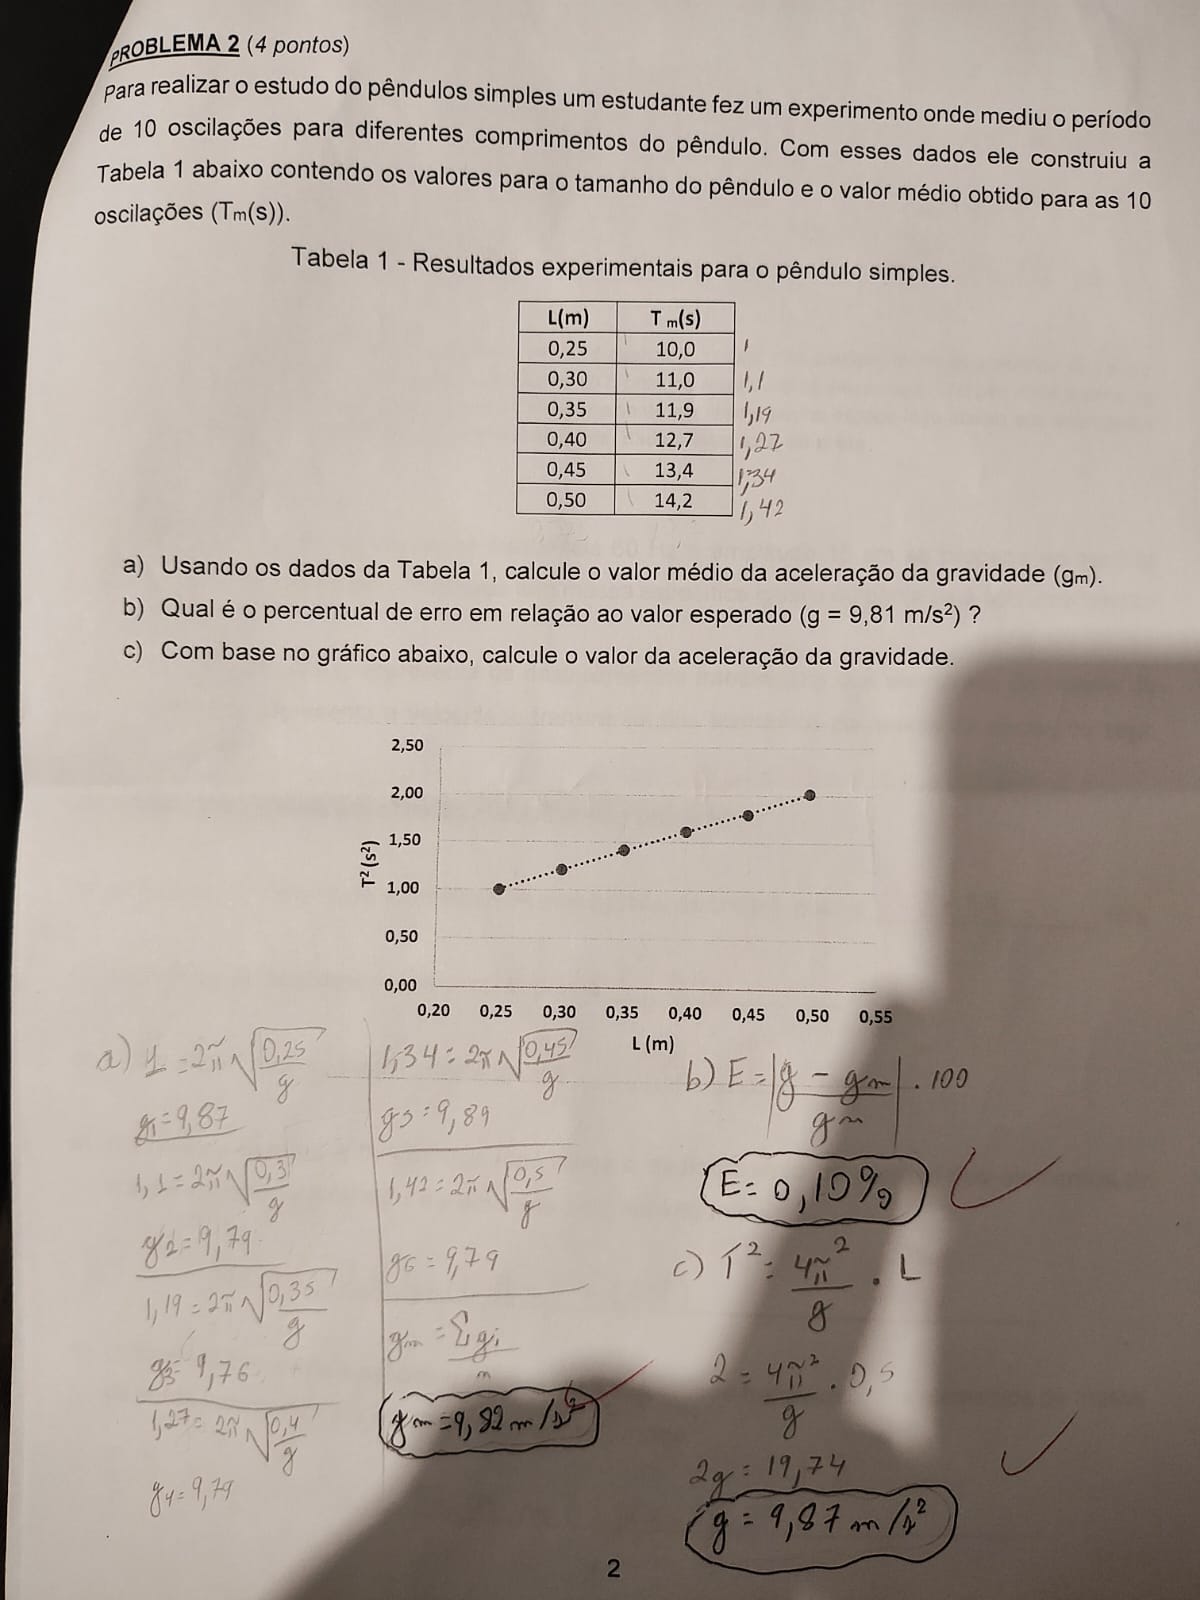 PROBLEMA 2 (4 pontos)
Para realizar o estudo do pêndulos simples um estudante fez um experimento onde mediu o período
de 10 oscilações para diferentes comprimentos do pêndulo. Com esses dados ele construiu a
Tabela 1 abaixo contendo os valores para o tamanho do pêndulo e o valor médio obtido para as 10
oscilações (Tm(s)).
Tabela 1 - Resultados experimentais para o pêndulo simples.
L(m) T m(s)
0,25 10,0 1
0,30 11,0 1,1
0,35 11,9 1,19
0,40 12,7 1,27
0,45 13,4 1,34
0,50 14,2 1,42
a) Usando os dados da Tabela 1, calcule o valor médio da aceleração da gravidade (gm).
b) Qual é o percentual de erro em relação ao valor esperado (g = 9,81 m/s²) ?
c) Com base no gráfico abaixo, calcule o valor da aceleração da gravidade.
2,50
2,00
1,50
1,00
0,50
0,00
T² (s²)
0,20 0,25 0,30 0,35 0,40 0,45 0,50 0,55
L (m)
a) 1 = 2π√(0,25/g)
g1 = 9,87
1,1 = 2π√(0,3/g)
g2 = 9,79
1,19 = 2π√(0,35/g)
g3 = 9,76
1,27 = 2π√(0,4/g)
g4 = 9,79
1,34 = 2π√(0,45/g)
g5 = 9,89
1,42 = 2π√(0,5/g)
g6 = 9,79
gm = Σgi/n
gm = 9,82 m/s²
b) E = |g - gm / gm| . 100
E = 0,10%
c) T² = 4π²/g . L
2 = 4π²/g . 0,5
2g = 19,74
g = 9,87 m/s²
2